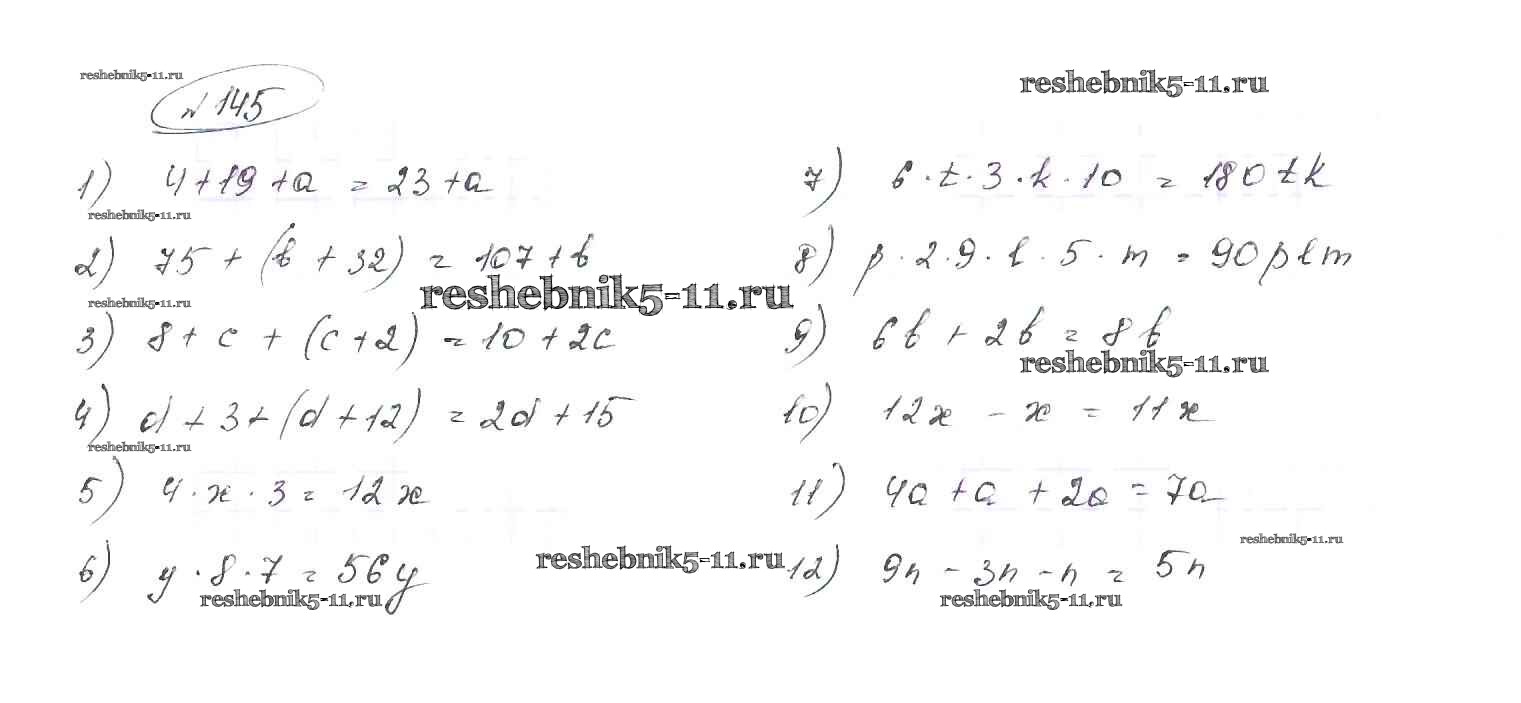 reshebnik5-11.ru
reshebnik5-11.ru
№ 145
1) 4+19+a = 23+a
reshebnik5-11.ru
2) 75 + (b + 32) = 107+b
reshebnik5-11.ru
reshebnik5-11.ru
3) 8+ c + (c+2) = 10+2c
4) d+3+(d+12) = 2d+15
reshebnik5-11.ru
5) 4·x·3 = 12x
6) y·8·7 = 56y
reshebnik5-11.ru
reshebnik5-11.ru
7) 6·t·3·k·10 = 180tk
8) p·2·9·l·5·m = 90plm
9) 6b + 2b = 8b
reshebnik5-11.ru
10) 12x - x = 11x
11) 4a+a+2a = 7a
reshebnik5-11.ru
12) 9n - 3n - n = 5n
reshebnik5-11.ru